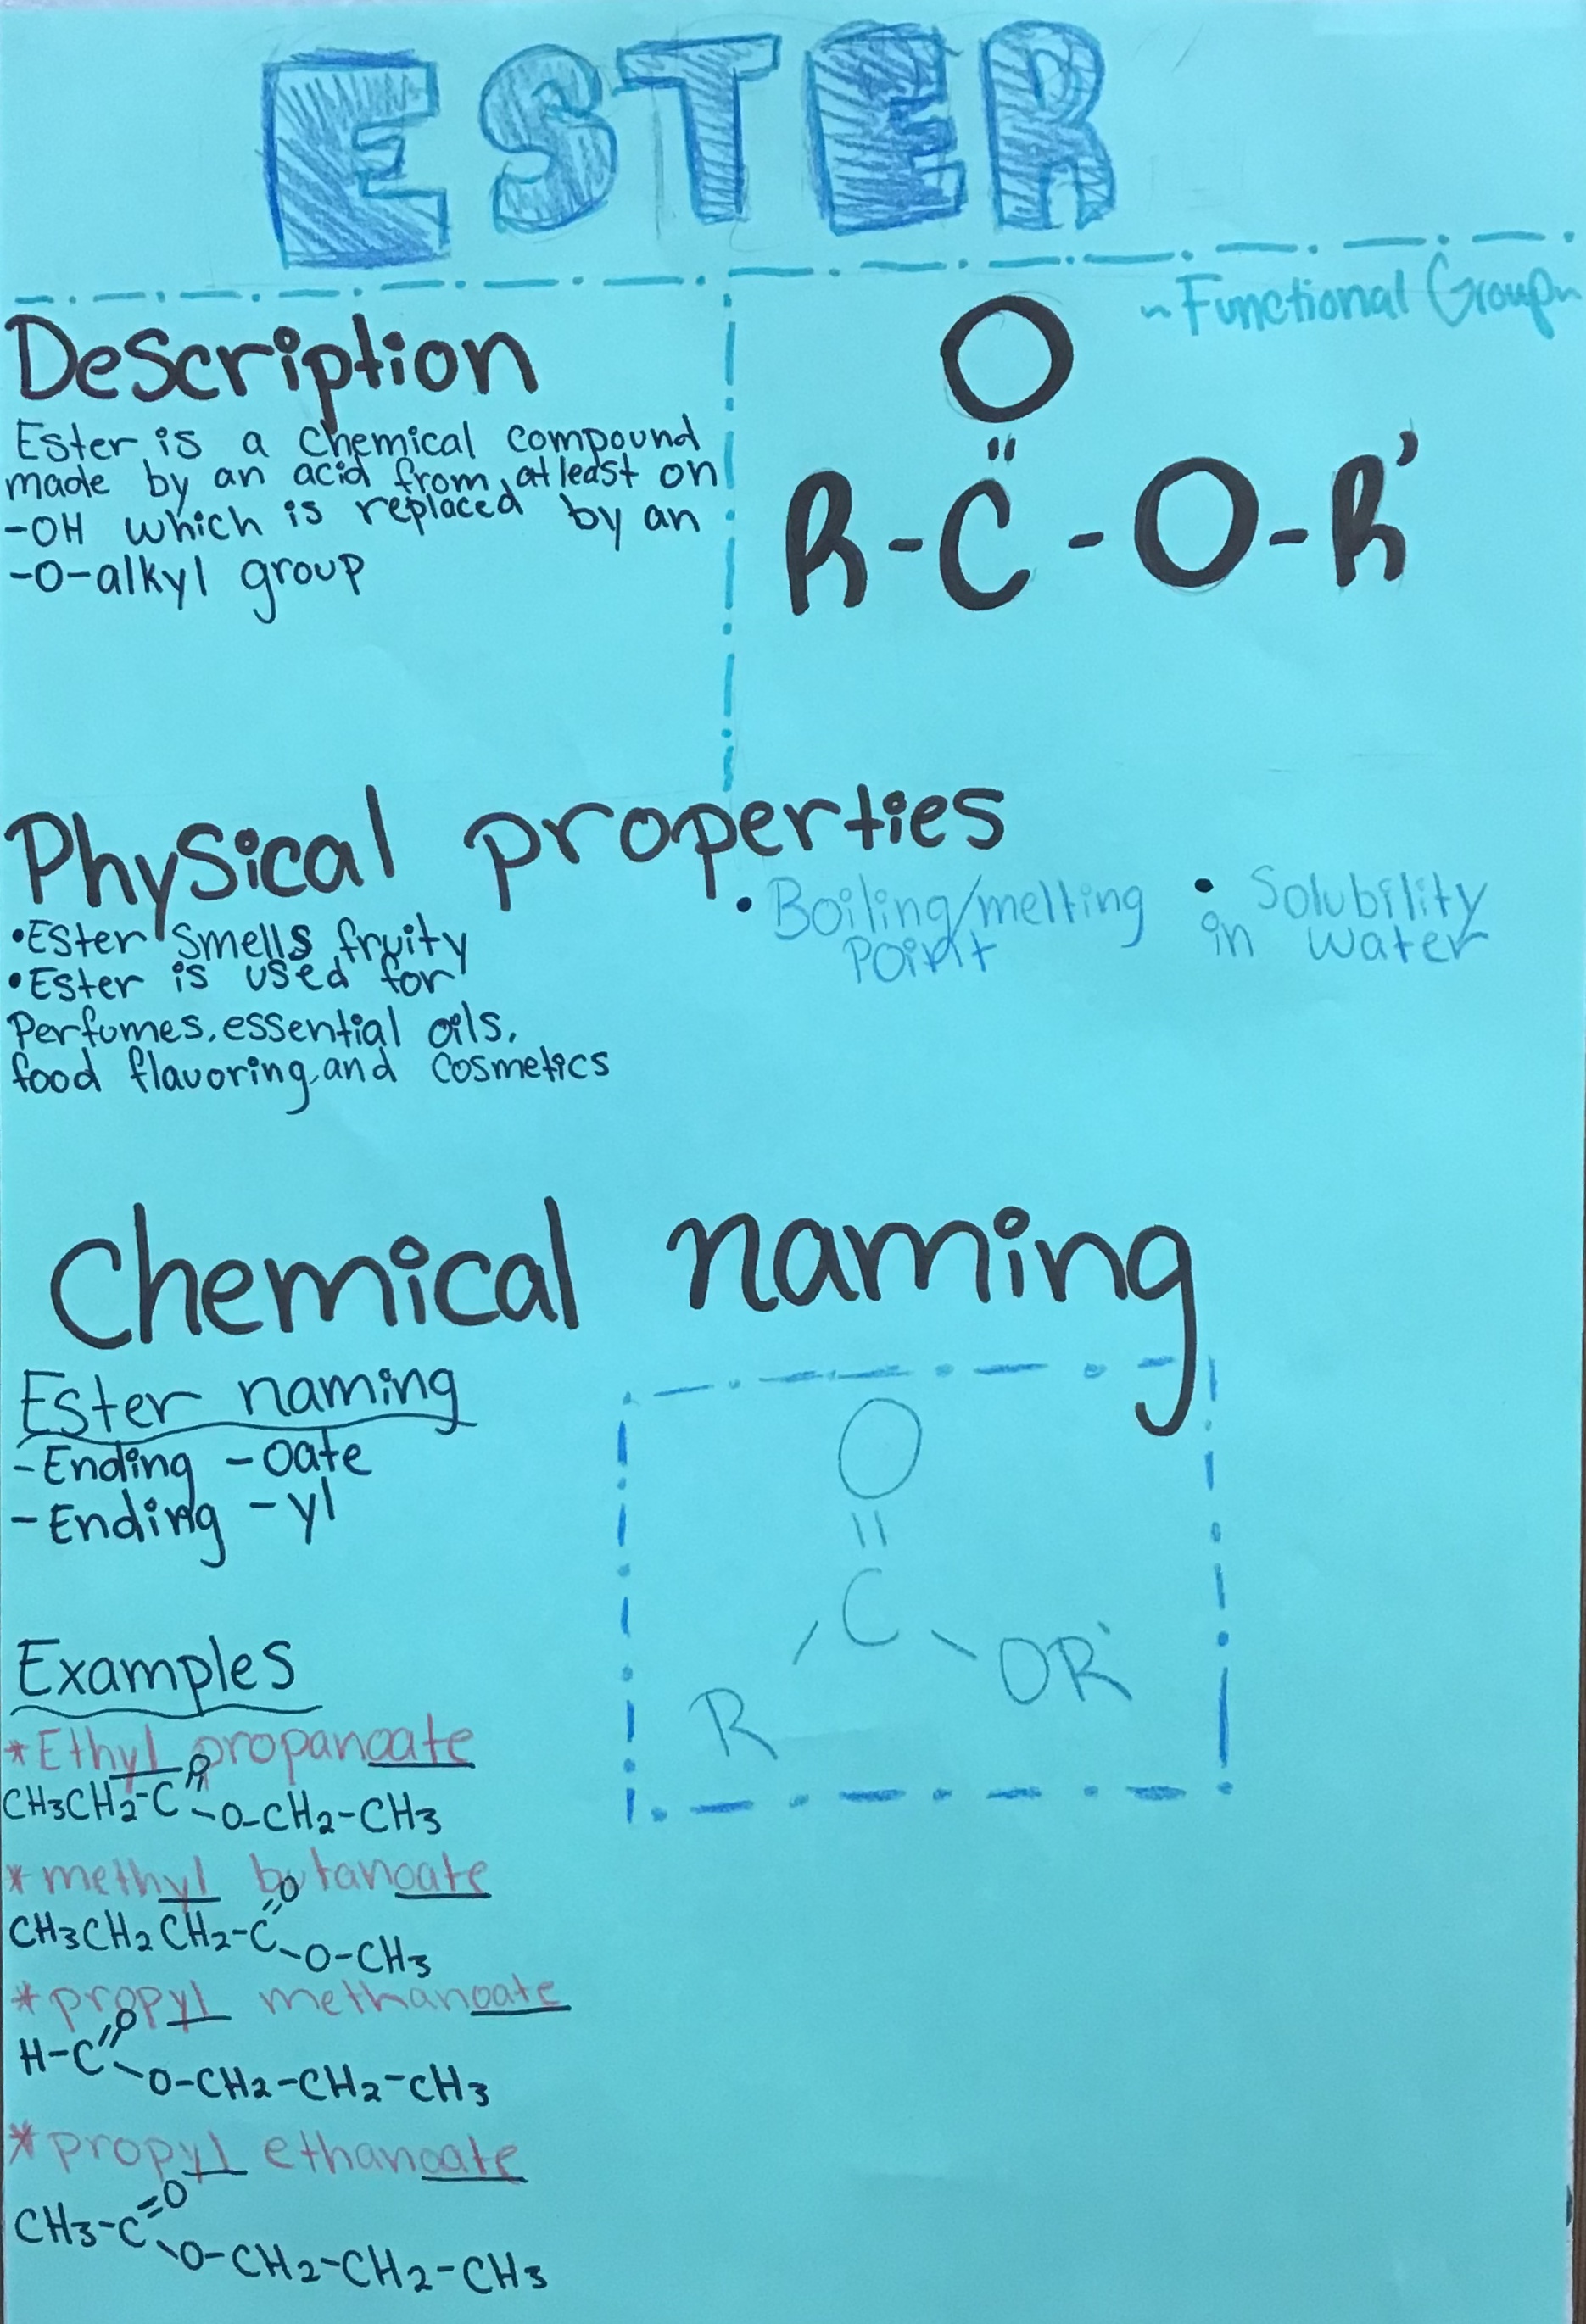 ESTER
Description
Ester is a chemical compound
made by an acid from at least on
-OH which is replaced by an
-O-alkyl group
~Functional Group~
O
"
R-C-O-R'
Physical properties
•Ester smells fruity
•Ester is used for
Perfumes, essential oils,
food flavoring, and cosmetics
• Boiling/melting
Point
• Solubility
in water
Chemical naming
Ester naming
-Ending -oate
-Ending -yl
O
||
C
R
OR'
Examples
*Ethyl propanoate
O
CH3CH2-C
O-CH2-CH3
*methyl butanoate
O
CH3CH2CH2-C
O-CH3
*propyl methanoate
O
H-C
O-CH2-CH2-CH3
*propyl ethanoate
=O
CH3-C
O-CH2-CH2-CH3